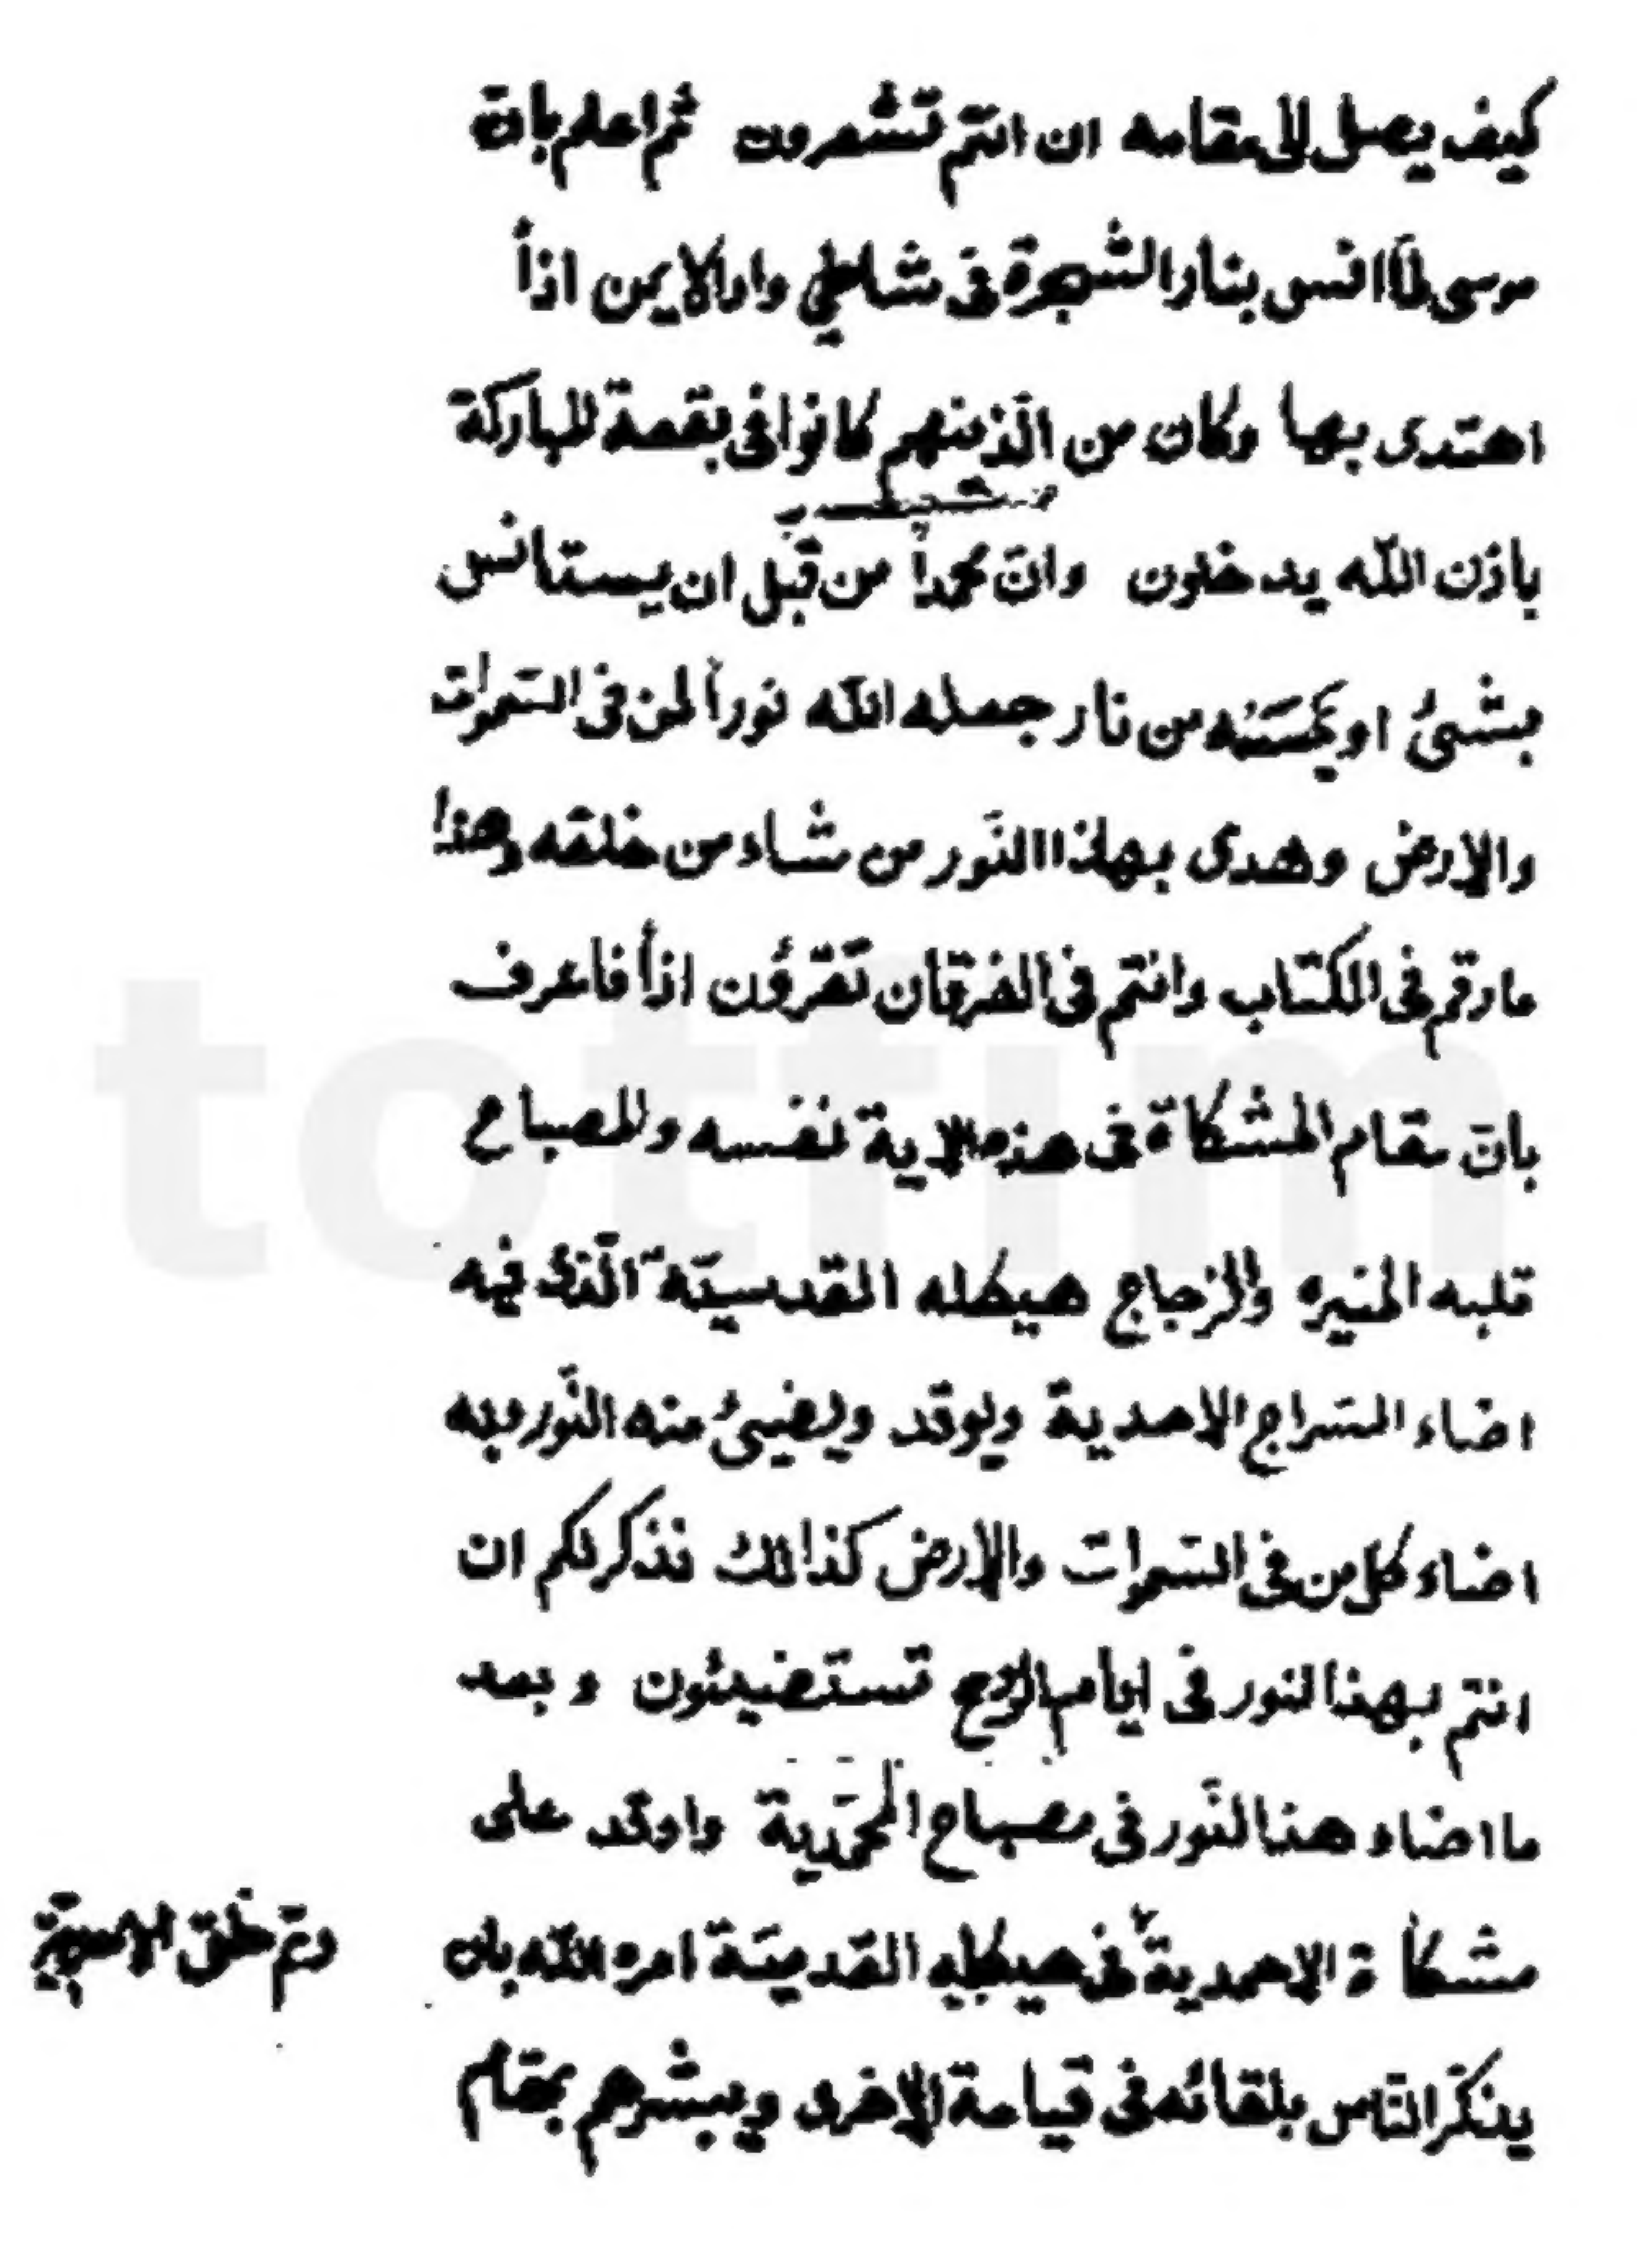 كيف يصل الى مقامه ان انتم تشعرون ثم اعلم بانّ
موسى لمّا انس بنار الشجرة فى شاطئ واد الايمن اذاً
اهتدى بها وكان من الّذينهم كانوا فى بقعة المباركة
باذن اللّه يدخلون وانّ محمداً من قبل ان يستانس
بشئ او يمسسه من نار جعله اللّه نوراً لمن فى السّموات
والارض وهدى بهذا النّور من شاء من خلقه وهذا
مارقم فى الكتاب وانتم فى الفرقان تقرؤن اذاً فاعرف
بانّ مقام المشكاة فى هذه الاية نفسه والمصباح
قلبه المنيره والزجاج هيكله القدسيّة الّذى فيه
اضاء السّراج الاحدية ويوقد ويضيئ منه النّور وبه
اضاء كل من فى السّموات والارض كذالك نذكر لكم ان
انتم بهذا لنور فى ايام الروح تستضيئون وبعد
ما اضاء هذا لنّور فى مصباح المحمّدية واوقد على
مشكاة الاحمدية فى هيكله القدميّة امره اللّه بان
يذكّر النّاس بلقائه فى قيامة الاخرى ويبشرهم بمقام